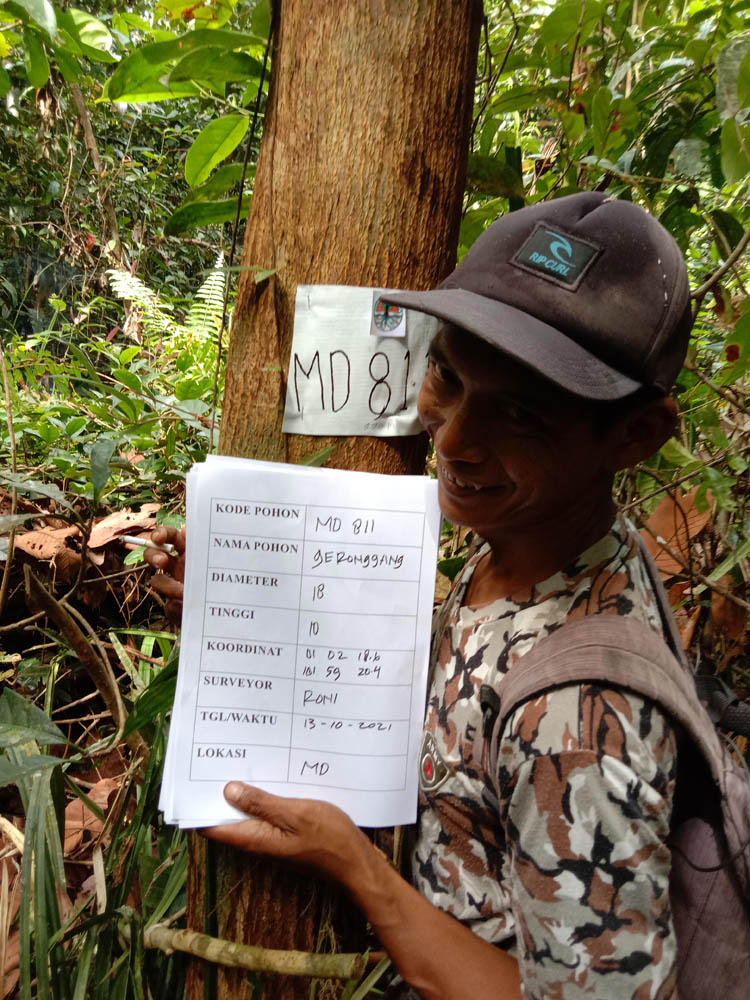 RIP CURL
MD 811
KODE POHON MD 811
NAMA POHON gERONggANg
DIAMETER 18
TINGGI 10
KOORDINAT 01 02 18.6
101 59 20.4
SURVEYOR RONI
TGL/WAKTU 13-10-2021
LOKASI MD